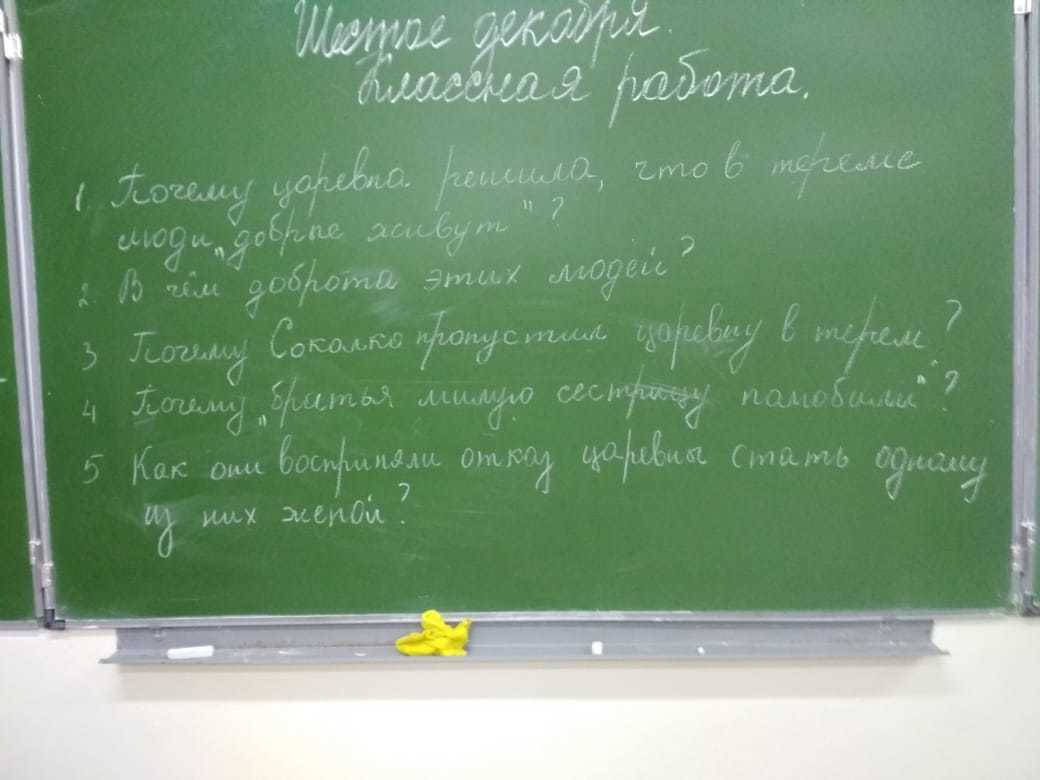 Шестое декабря.
Классная работа.
1. Почему царевна решила, что в тереме
люди „добрые живут"?
2. В чём доброта этих людей?
3 Почему Соколко пропустил царевну в терем?
4 Почему „братья милую сестрицу полюбили"?
5 Как они восприняли отказ царевны стать одному
из них женой?